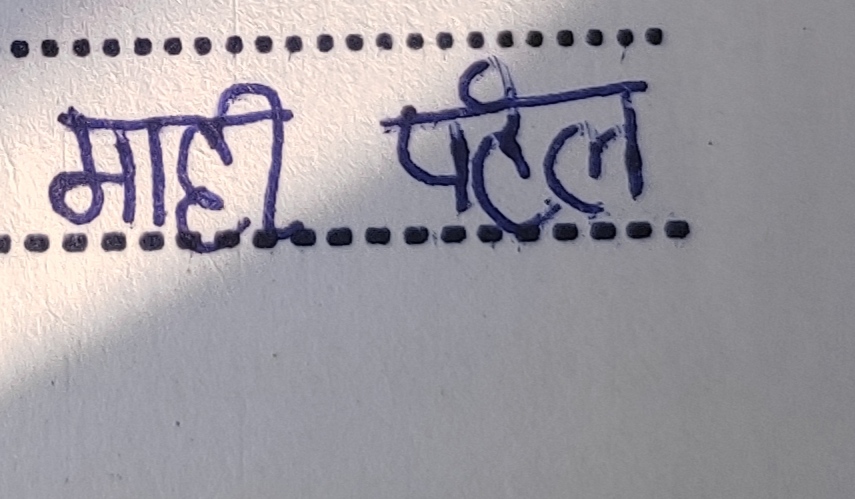 माही पटेल